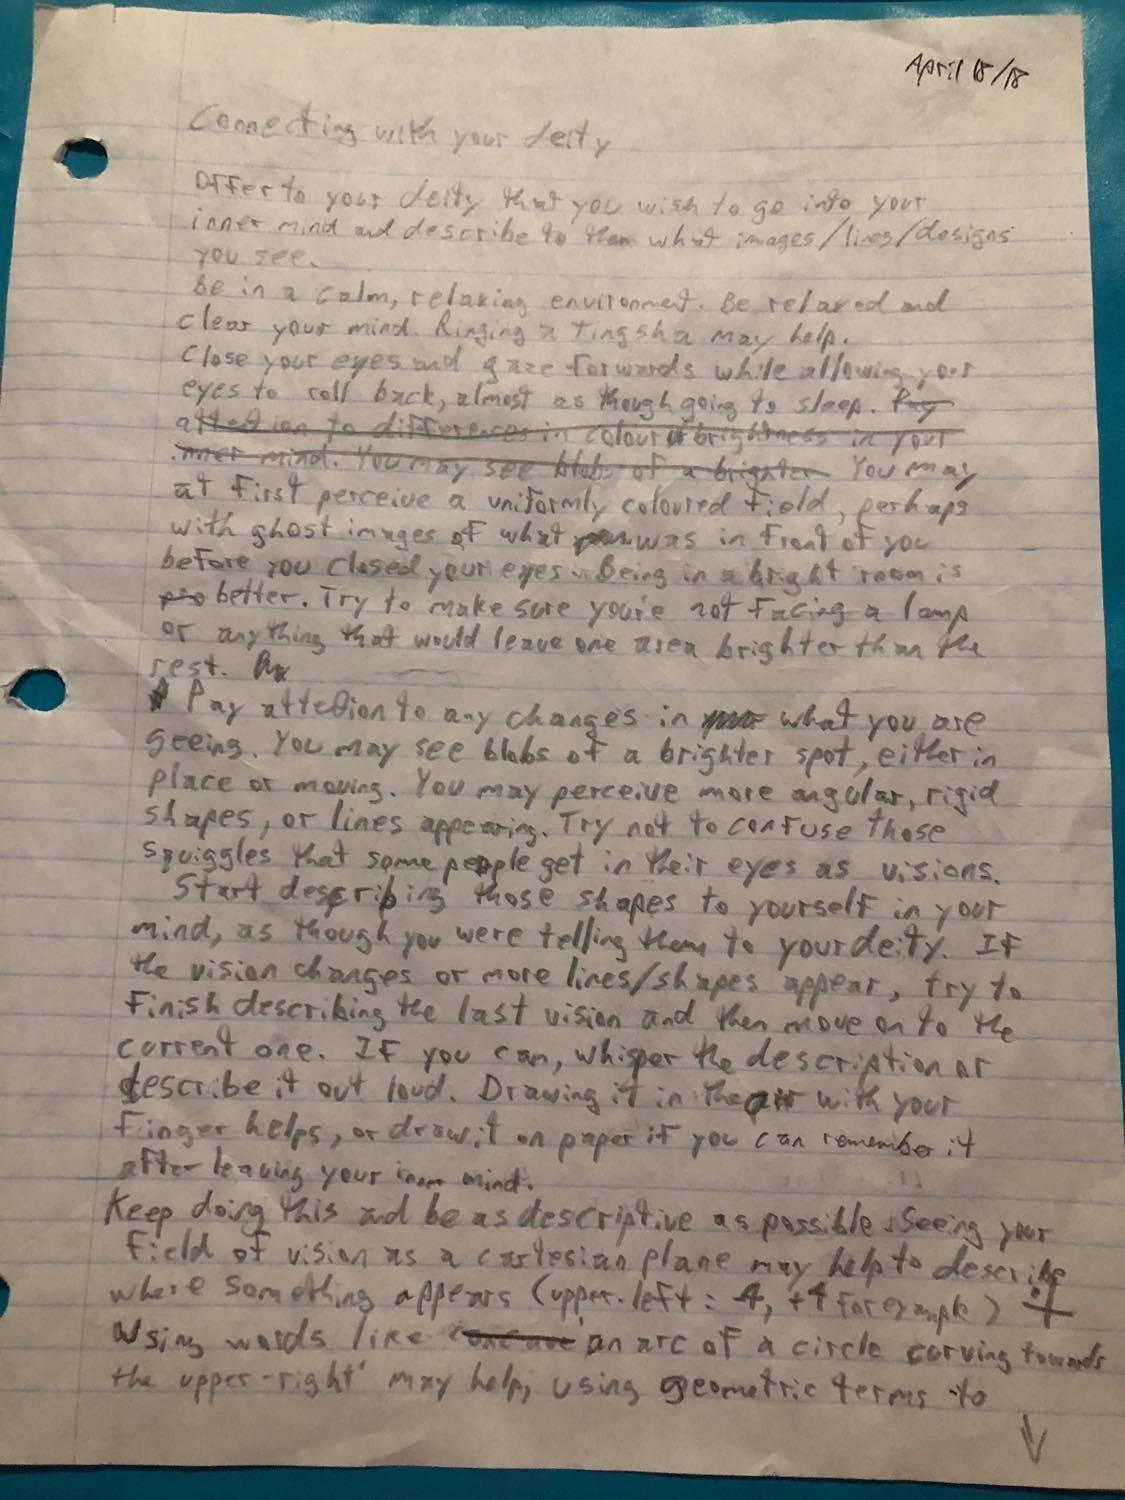 April 18/18
Connecting with your deity
Offer to your deity that you wish to go into your
inner mind and describe to them what images/lines/designs
you see.
Be in a calm, relaxing environment. Be relaxed and
clear your mind. Ringing a Tingsha may help.
Close your eyes and gaze forwards while allowing your
eyes to roll back, almost as though going to sleep. Pay
attention to differences in colour or brightness in your
inner mind. You may see blobs of a brighter You may
at first perceive a uniformly coloured field, perhaps
with ghost images of what was in front of you
before you closed your eyes. Being in a bright room is
better. Try to make sure you're not facing a lamp
or anything that would leave one area brighter than the
rest.
Pay attetion to any changes in what you are
seeing. You may see blobs of a brighter spot, either in
place or moving. You may perceive more angular, rigid
shapes, or lines appearing. Try not to confuse those
squiggles that some people get in their eyes as visions.
Start describing those shapes to yourself in your
mind, as though you were telling them to your deity. If
the vision changes or more lines/shapes appear, try to
finish describing the last vision and then move on to the
current one. If you can, whisper the description or
describe it out loud. Drawing it in the air with your
finger helps, or draw it on paper if you can remember it
after leaving your inner mind.
Keep doing this and be as descriptive as possible. Seeing your
field of vision as a cartesian plane may help to describe
where something appears (upper-left: -4, +4 for example)
Using words like concave 'an arc of a circle curving towards
the upper-right' may help, using geometric terms to